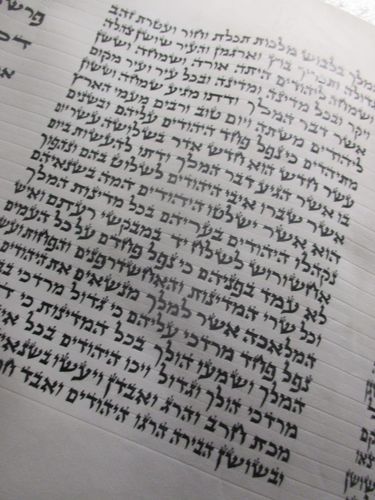 המלך בלבוש מלכות תכלת וחור ועטרת זהב
גדולה ותכריך בוץ וארגמן והעיר שושן צהלה
ושמחה ליהודים היתה אורה ושמחה וששן
ויקר ובכל מדינה ומדינה ובכל עיר ועיר מקום
אשר דבר המלך ודתו מגיע שמחה וששון
ליהודים משתה ויום טוב ורבים מעמי הארץ
מתיהדים כי נפל פחד היהודים עליהם ובשנים
עשר חדש הוא חדש אדר בשלושה עשר יום
בו אשר הגיע דבר המלך ודתו להעשות ביום
אשר שברו איבי היהודים לשלוט בהם ונהפוך
הוא אשר ישלטו היהודים המה בשנאיהם
נקהלו היהודים בעריהם בכל מדינות המלך
אחשורוש לשלח יד במבקשי רעתם ואיש
לא עמד בפניהם כי נפל פחדם על כל העמים
וכל שרי המדינות והאחשדרפנים והפחות ועשי
המלאכה אשר למלך מנשאים את היהודים
נפל פחד מרדכי עליהם כי גדול מרדכי
המלך ושמעו הולך בכל המדינות כי
מרדכי הולך וגדול ויכו היהודים בכל
מכת חרב והרג ואבדן ויעשו
ובשושן הבירה הרגו היהודים ואבד